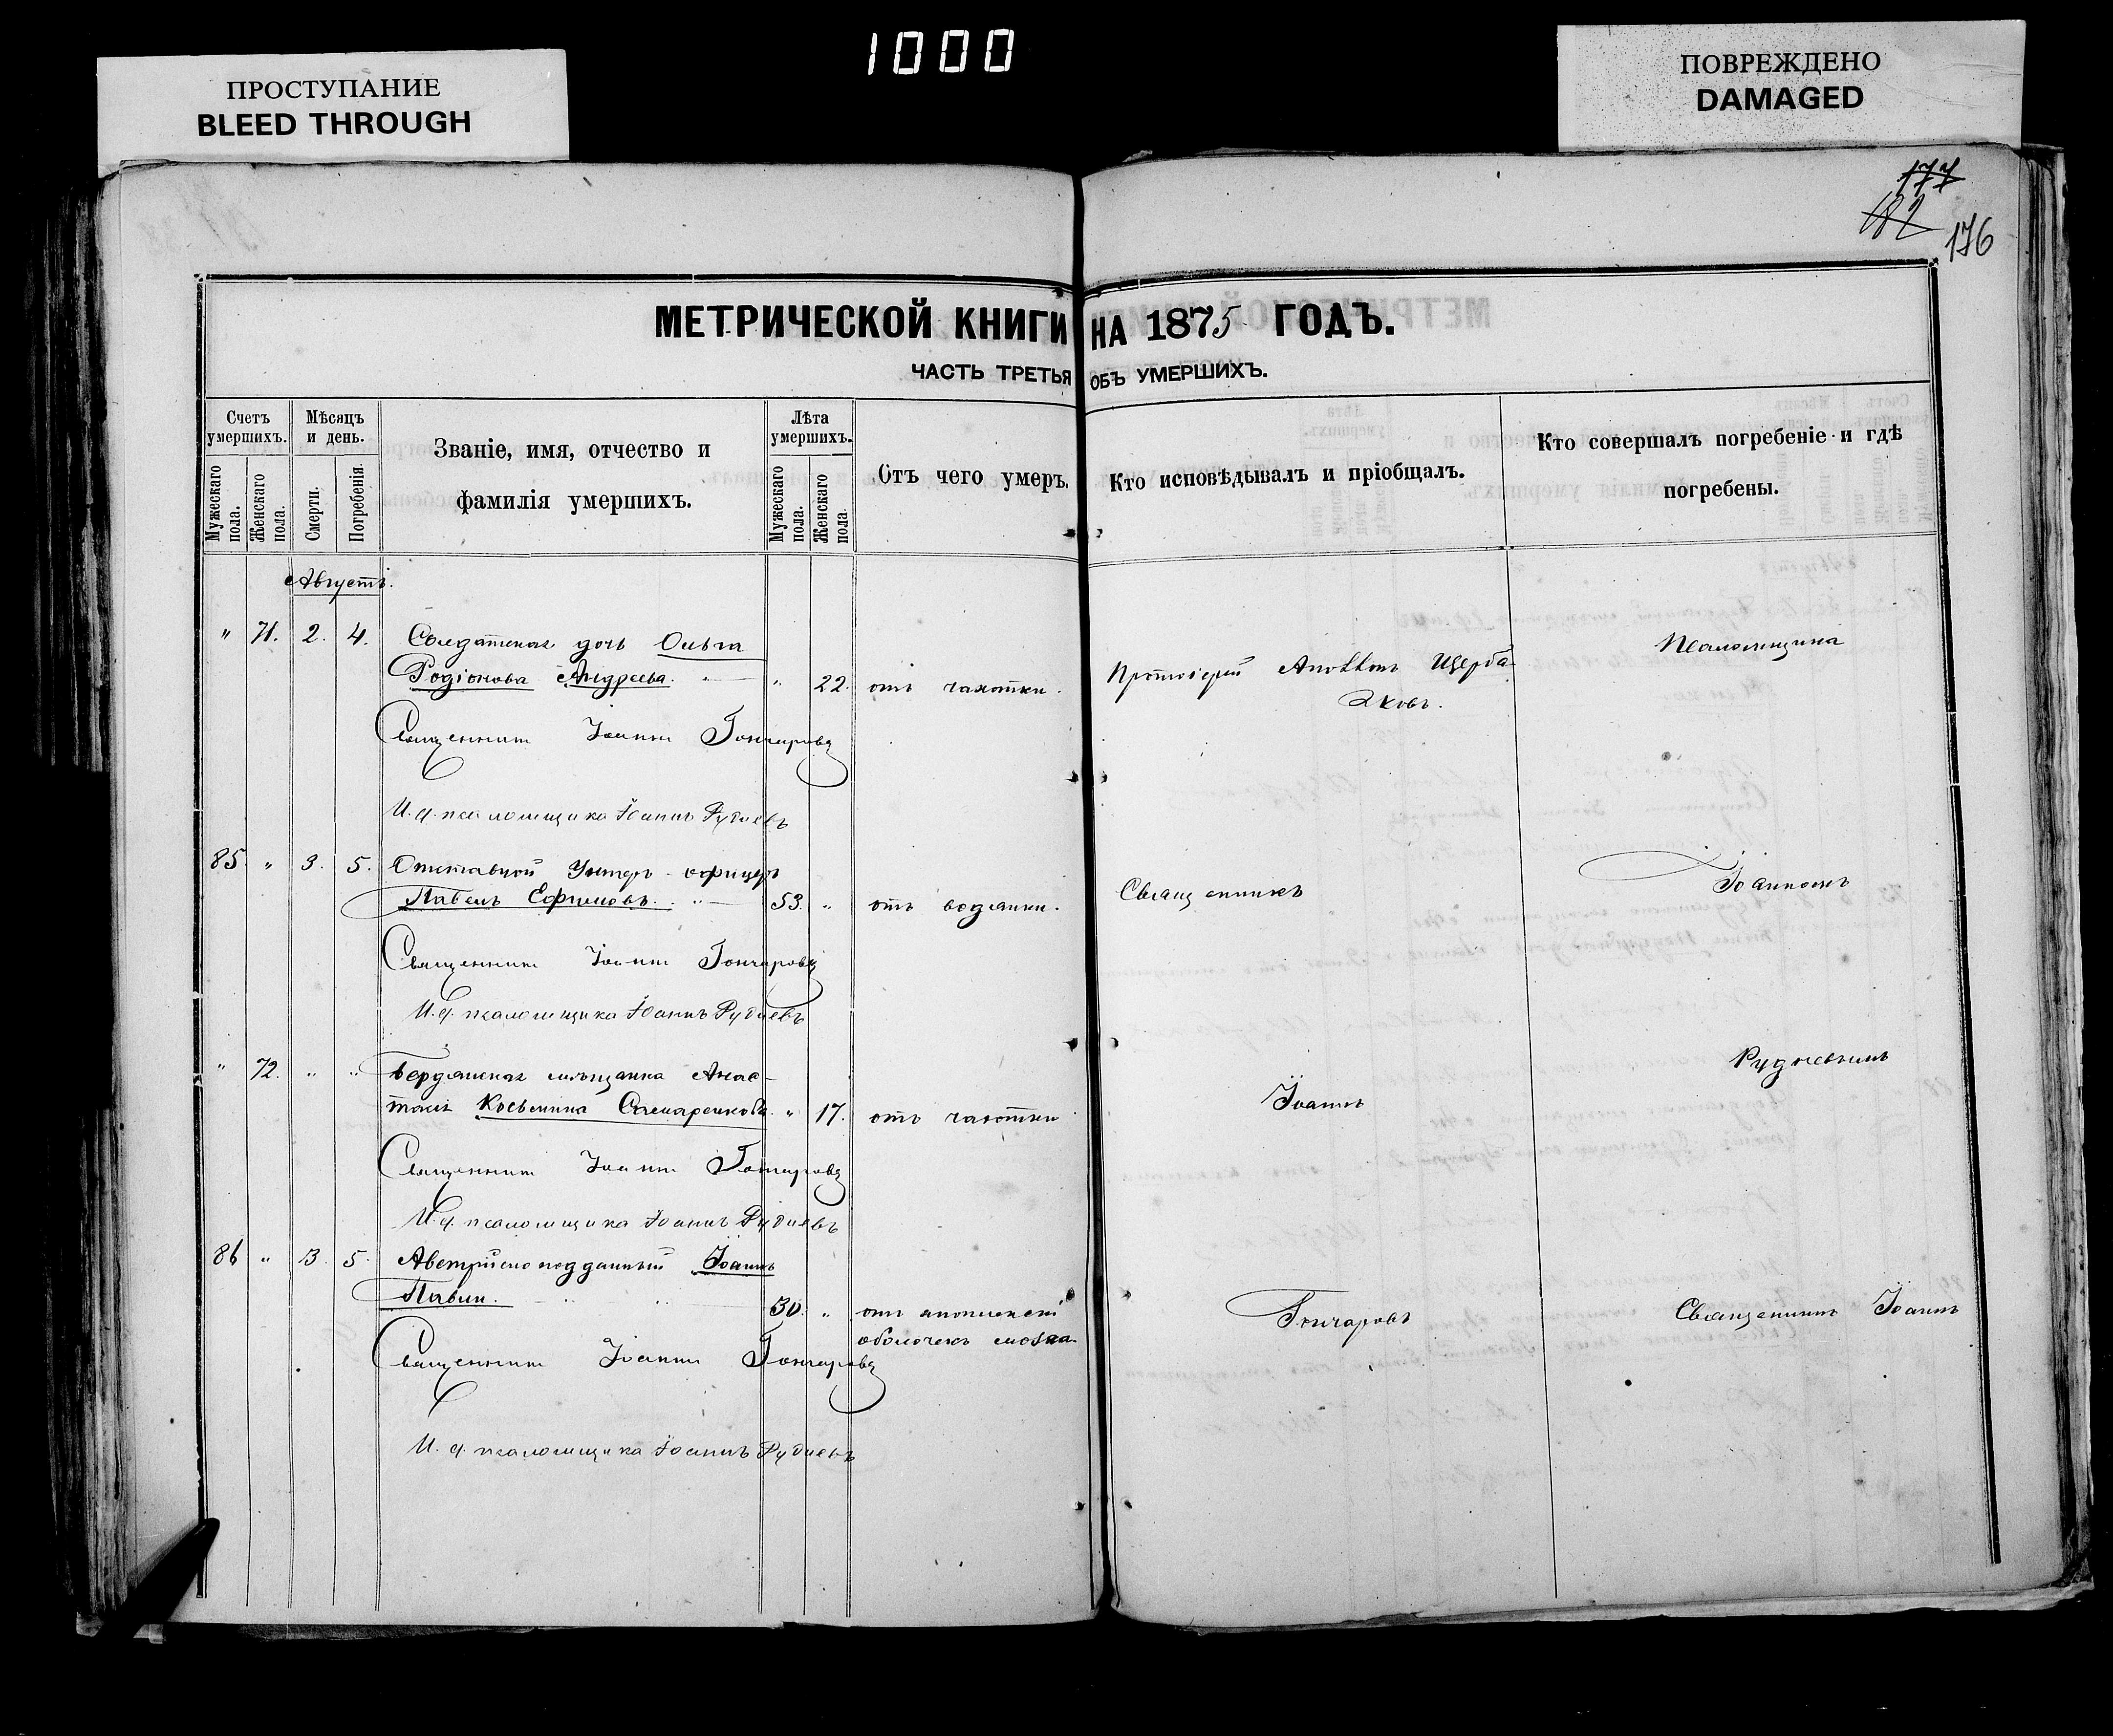 1000
ПРОСТУПАНИЕ
BLEED THROUGH
ПОВРЕЖДЕНО
DAMAGED
177
182
176
МЕТРИЧЕСКОЙ КНИГИ НА 1875 ГОДЪ.
ЧАСТЬ ТРЕТЬЯ ОБЪ УМЕРШИХЪ.
Счетъ умершихъ.
Мужескаго пола.
Женскаго пола.
Мѣсяцъ и день.
Смерти.
Погребенія.
Званіе, имя, отчество и
фамилія умершихъ.
Лѣта умершихъ.
Мужескаго пола.
Женскаго пола.
Отъ чего умеръ.
Кто исповѣдывалъ и пріобщалъ.
Кто совершалъ погребеніе и гдѣ
погребены.
Августъ.
" 71. 2. 4. Солдатская дочь Ольга
Родіонова Андреева. " 22. отъ чахотки.
Протоіерей Аполлонъ Щерба-
ковъ.
Псаломщика
Священникъ Іоаннъ Гончаровъ
И. д. псаломщика Іоаннъ Рудневъ
85 " 3. 5. Отставной Унтеръ-офицеръ
Павелъ Ефимовъ. 53. " отъ водянки.
Священникъ
Іоанномъ
Священникъ Іоаннъ Гончаровъ
И. д. псаломщика Іоаннъ Рудневъ
" 72. " " Бердянская мѣщанка Анас-
тасія Косьмина " 17. отъ чахотки
Іоаннъ
Рудневымъ
Священникъ Іоаннъ Гончаровъ
И. д. псаломщика Іоаннъ Рудневъ
86 " 3. 5. Австрійско подданный Іоаннъ
Павли. 30. " отъ
оболочекъ мозга.
Гончаровъ
Священникъ Іоаннъ
Священникъ Іоаннъ Гончаровъ
И. д. псаломщика Іоаннъ Рудневъ